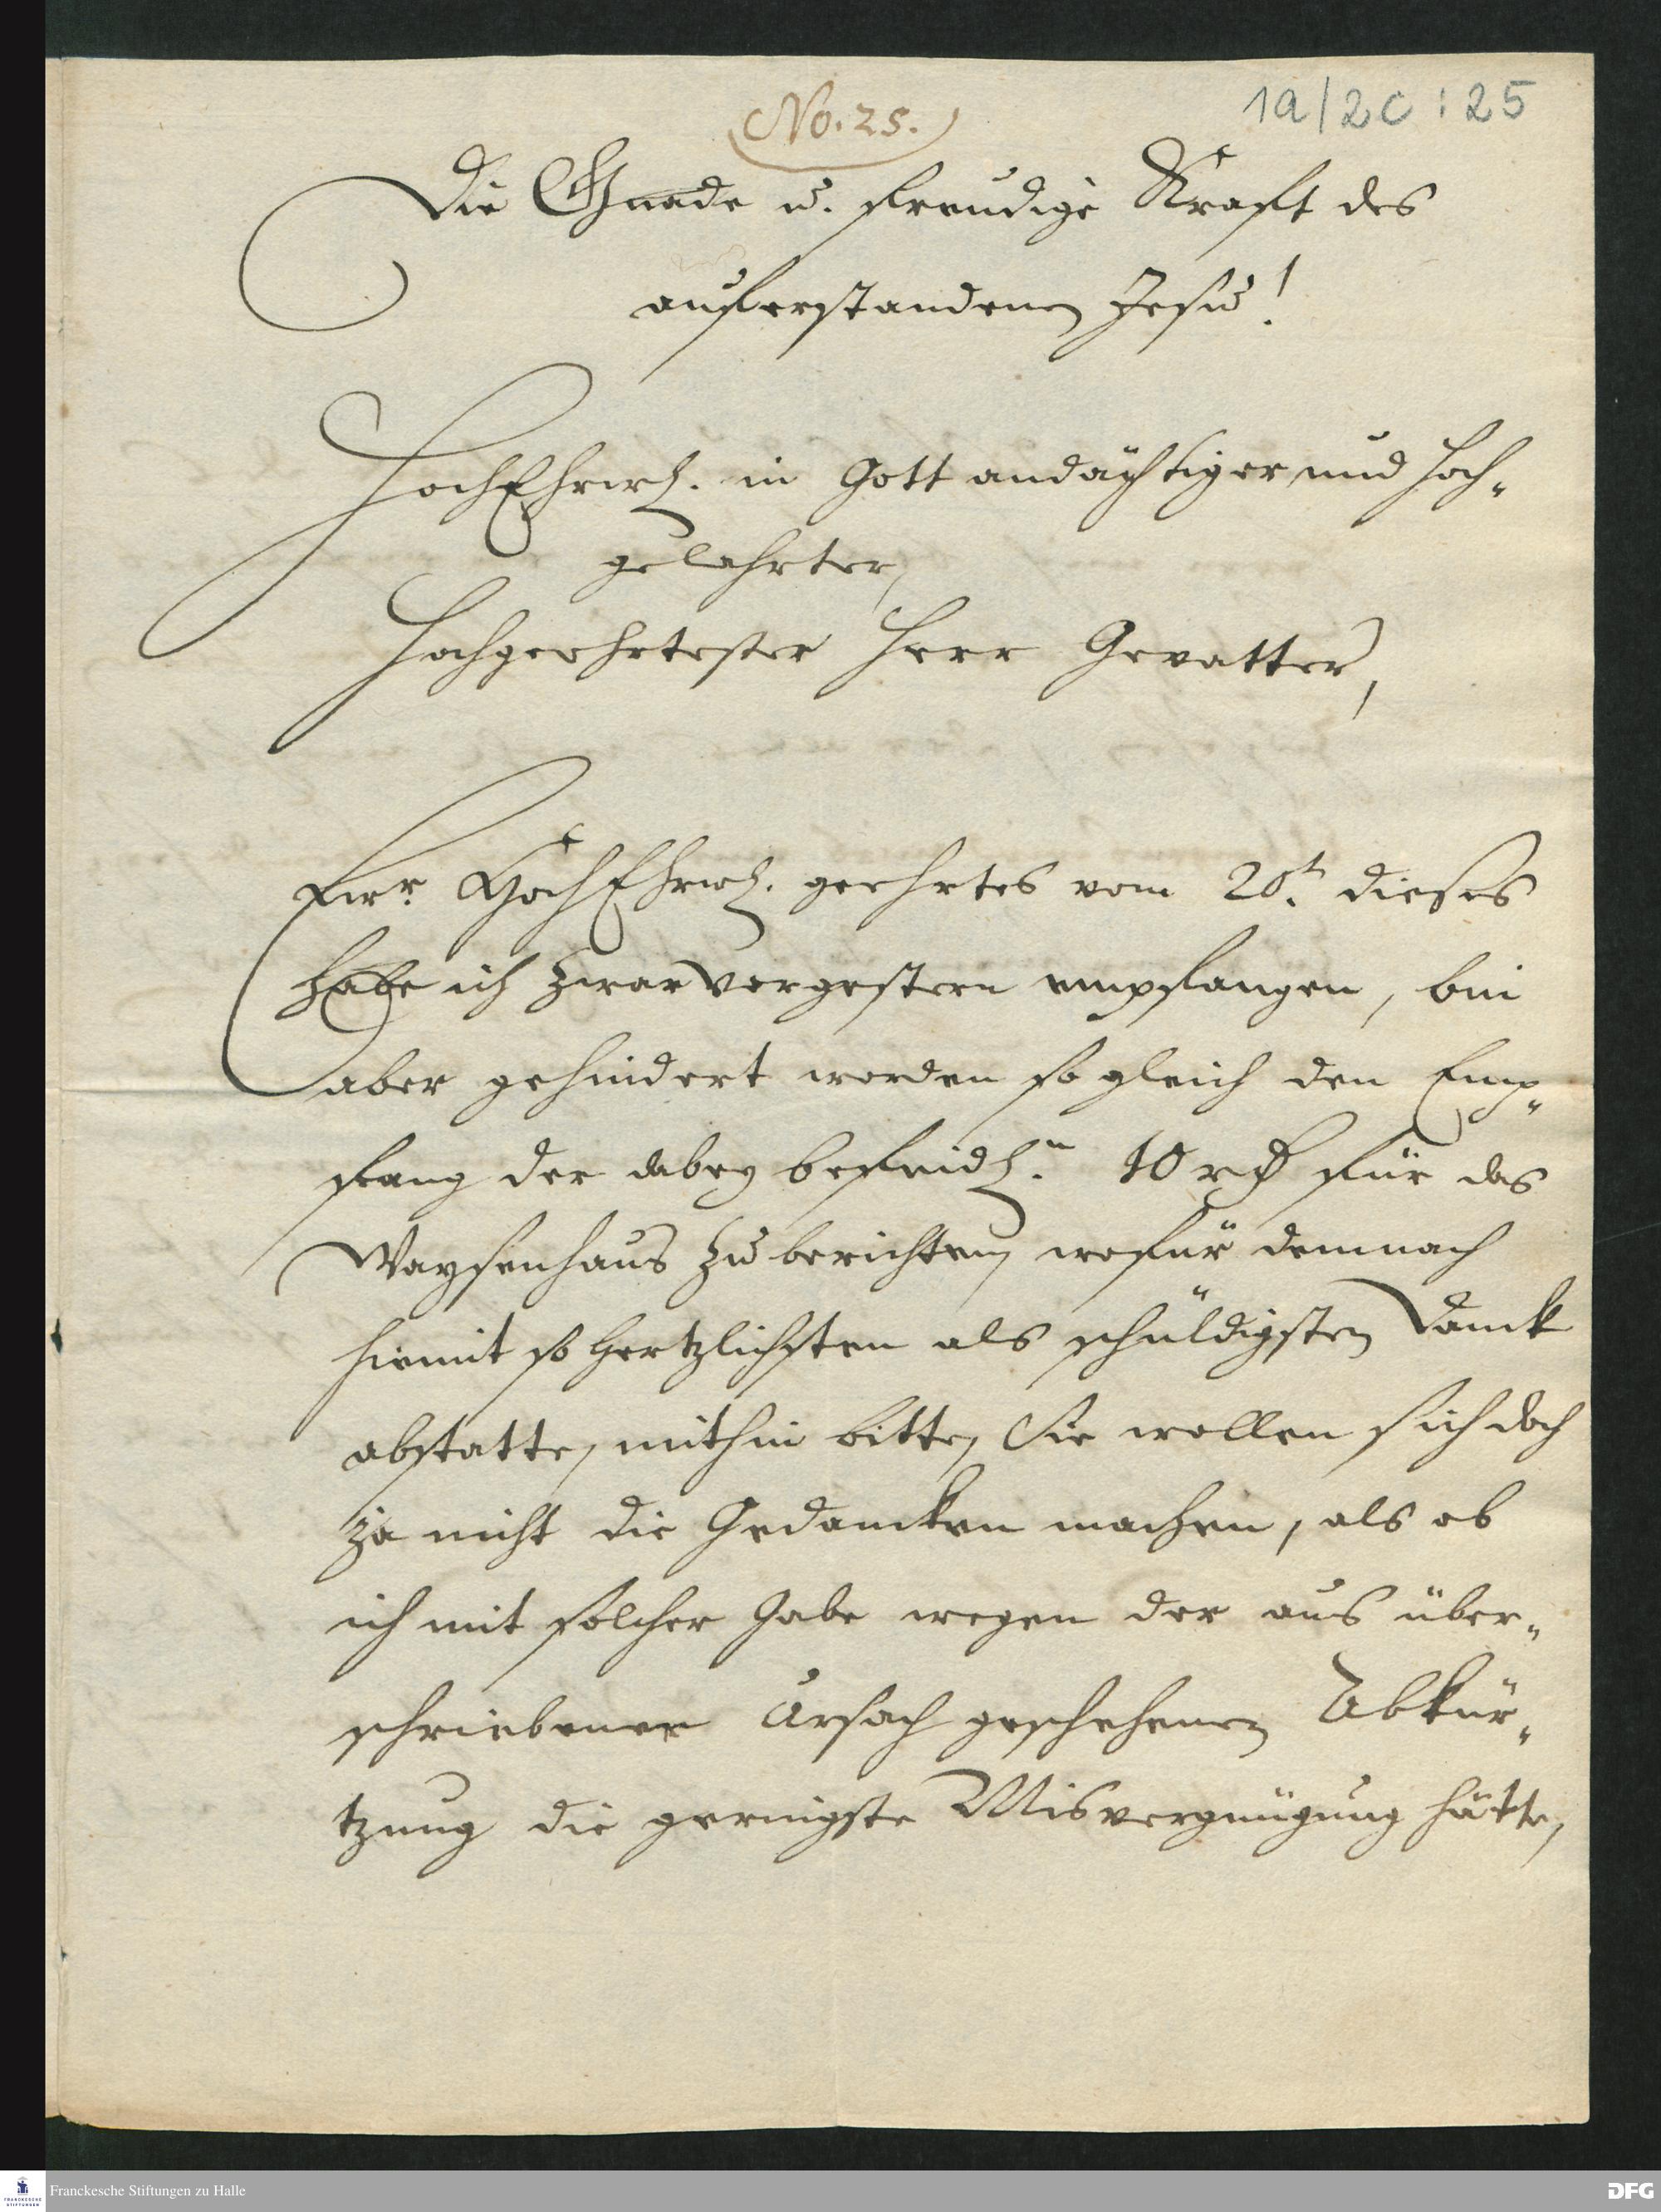 No. 25.
1a/2c : 25
Die Gnade u. freudige Kraft des
auferstandenen Jesu!
HochEhrw. in Gott andächtiger und Hoch-
gelahrter,
Hochgeehrtester Herr Gevatter,
Ewr. HochEhrw. geehrtes vom 20t. dieses
habe ich zwar vorgestern empfangen, bin
aber gehindert worden so gleich den Emp-
fang der dabey befindl.n 10 rth für das
Waysenhaus zu berichten, wofür demnach
hiemit so hertzlichsten als schuldigsten Danck
abstatte, mithin bitte, Sie wollen sich doch
ja nicht die Gedancken machen, als ob
ich mit solcher Gabe wegen der aus über-
schriebener Ursach geschehenen Abkür-
tzung die geringste Misvergnügung hätte,
Franckesche Stiftungen zu Halle
DFG